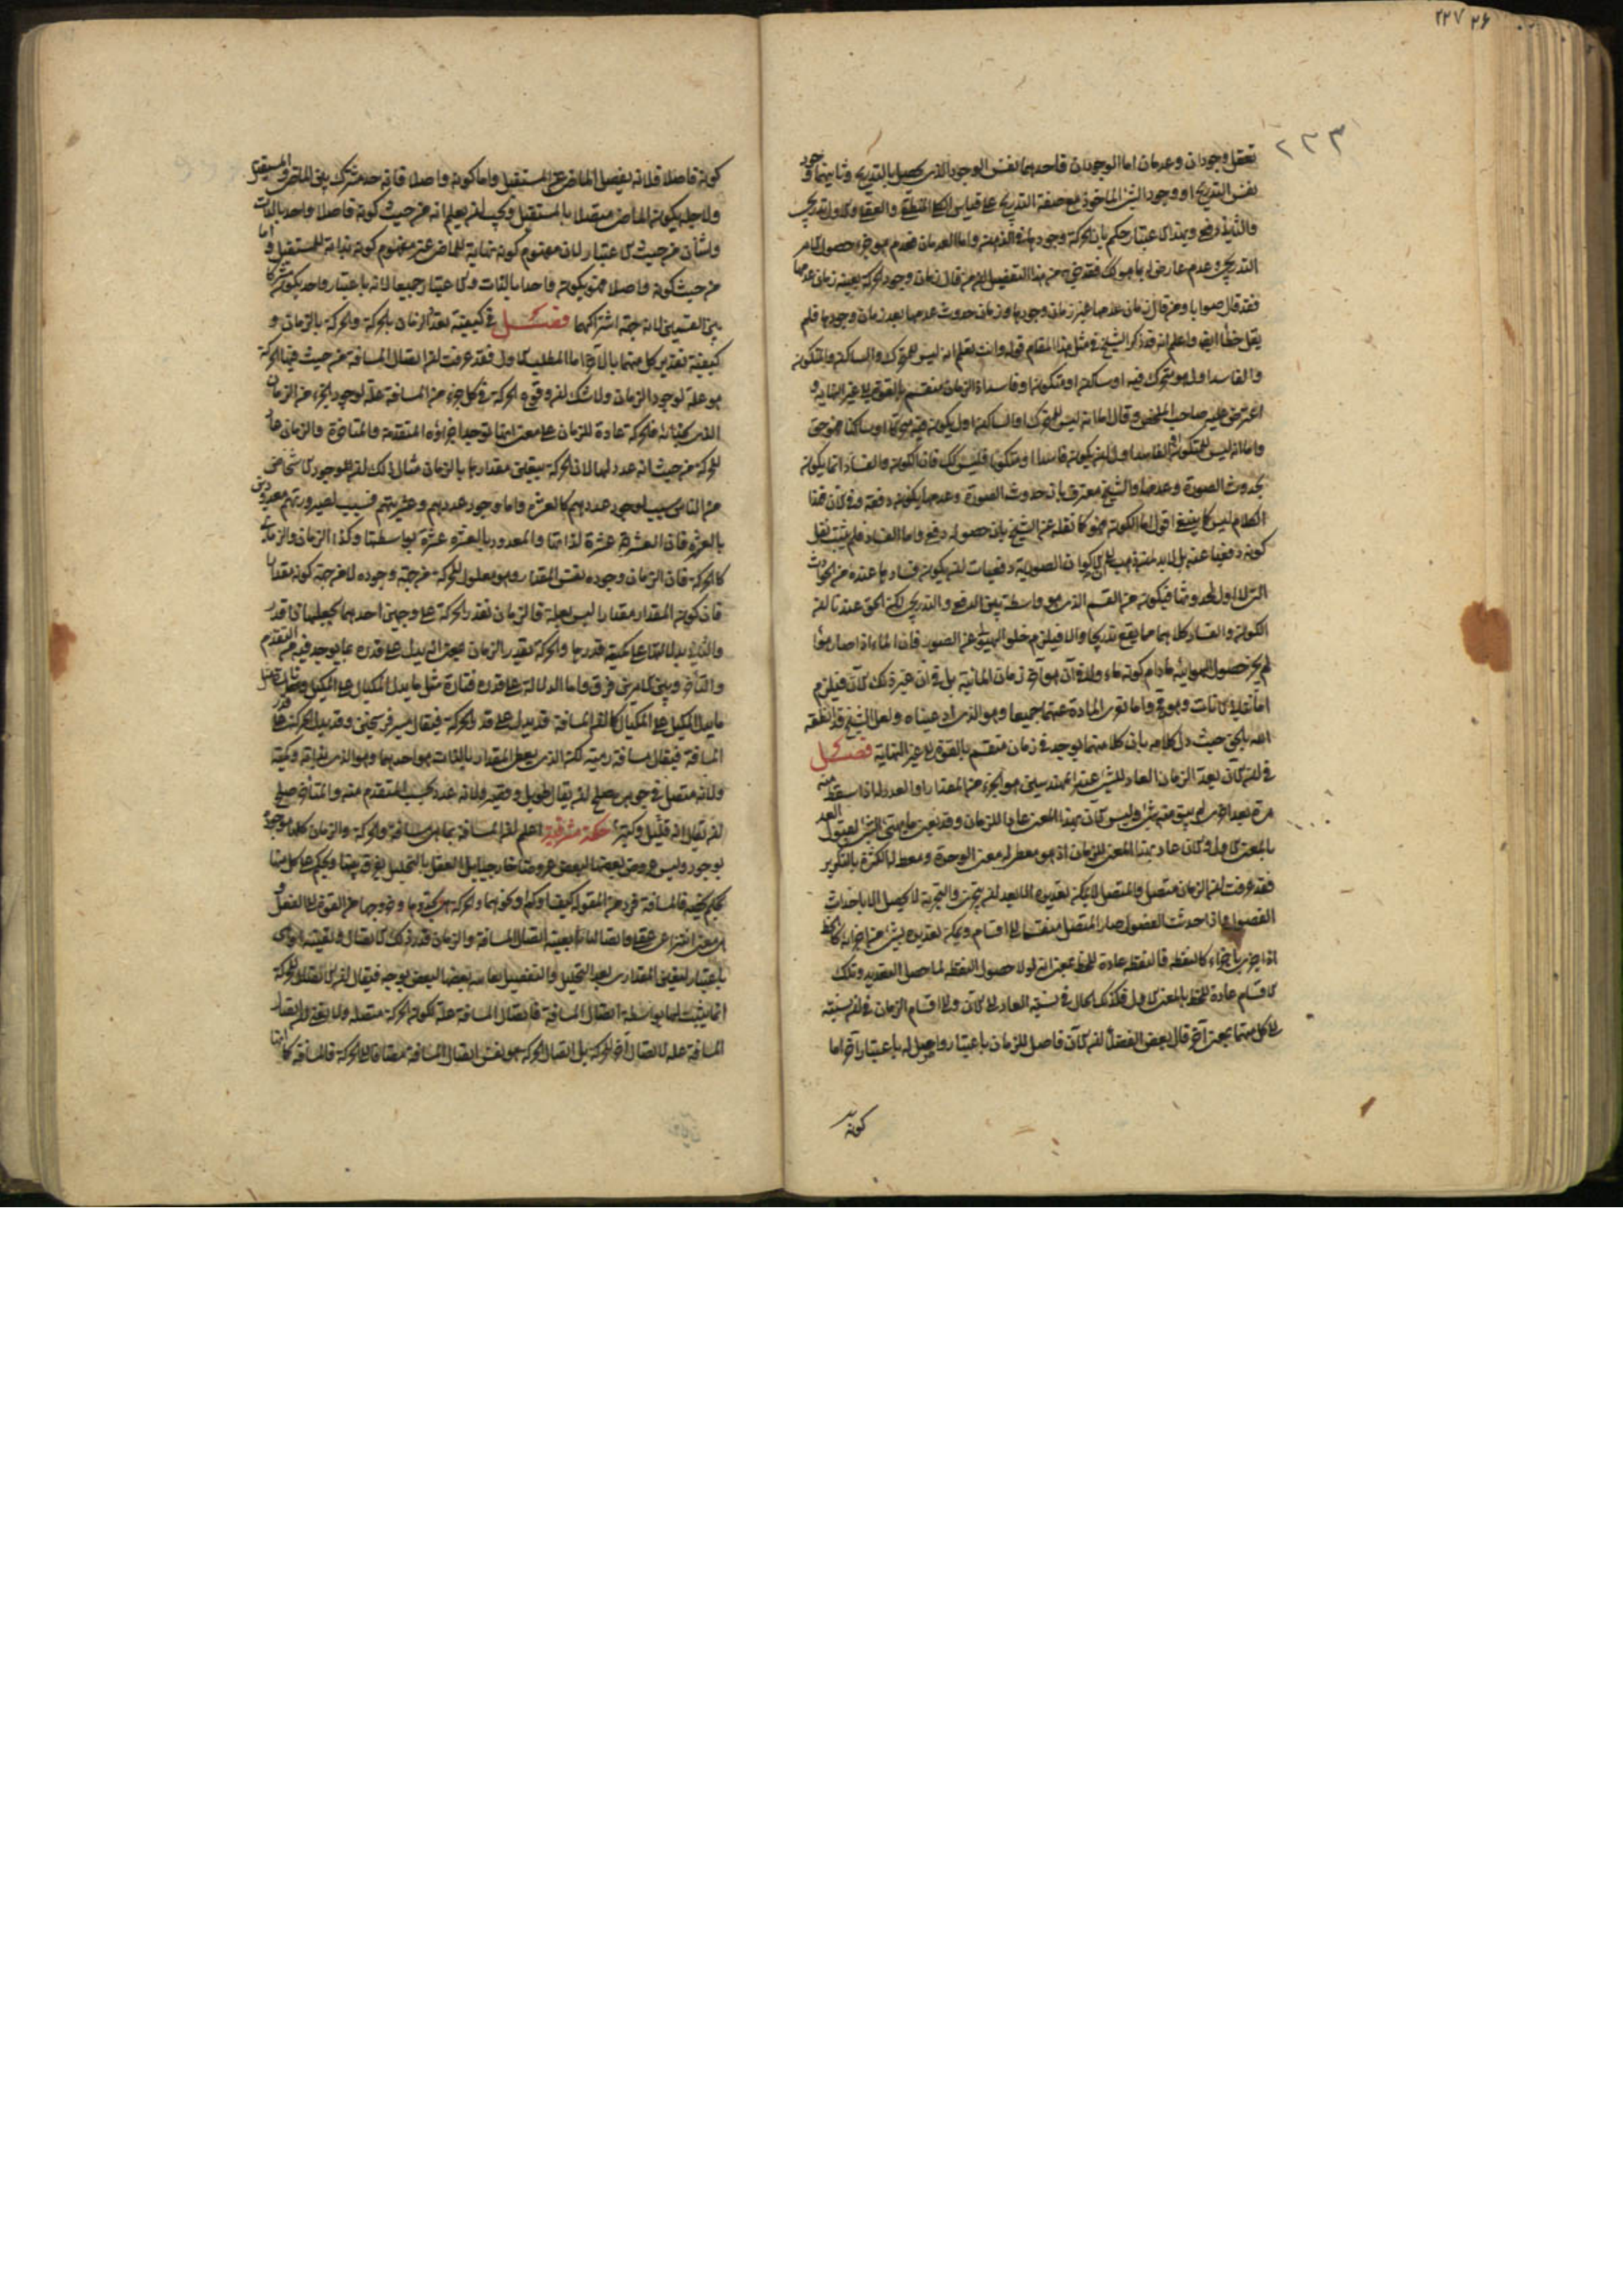 ٢٢٧ ٢۶
٢٢٣
تعقل وجودان وعدمان اما الوجودان فاحدهما نفس الوجود الذى يحصل بالتدريج وثانيهما وجود
نفس التدريج او وجود الشئ الماخوذ مع صفة التدريج على قياس الكلى المنطقى والعقلى والاول تدريجى
والثانى دفعى وبهذا الاعتبار حكم بان الحركة وجودها فى الذهن واما العدمان فعدم هو جزء حصول الامر
التدريجى وعدم عارض له بما هو كك فقد ظهر من هذا التفصيل ان من قال زمان وجود الحركة بعينه زمان عدمها
فقد قال صوابا ومن قال زمان عدمها غير زمان وجودها وزمان حدوث عدمها بعد زمان وجودها فلم
يقل خطأ ايضا واعلم انه قد ذكر الشيخ فى مثل هذا المقام قوله وانت تعلم انه ليس للمتحرك والساكن والمتكون
والفاسد اول هو متحرك فيه او ساكن او متكون او فاسد اذ الزمان منقسم بالقوة الى غير النهاية و
اعترض عليه صاحب الملخص وقال اما انه ليس للمتحرك او الساكن اول يكون فيه متحركا او ساكنا فهو حق
واما انه ليس للمتكون او الفاسد اول ان يكون فاسدا او متكونا فليس كك فان الكون والفساد انما يكون
بحدوث الصورة وعدمها والشيخ معترف بان حدوث الصورة وعدمها يكون دفعة وفى الآن فهذا
الكلام ليس كما ينبغى اقول اما الكون فهو كما نقله عن الشيخ بان حصوله دفعى واما الفساد فلم يثبت نقل
كونه دفعيا عنه بل لابد لمن ذهب الى ان الاكوان الصورية دفعيات ان يكون فسادها عنده من الحوادث
التى لا اول لحدوثها فيكون من القسم الذى هو واسطة بين الدفعى والتدريجى لكن الحق عندنا ان
الكون والفساد كلاهما مما يقع تدريجا والا فيلزم خلو الهيولى عن الصور فان الماء اذا صار هواء
لم يجز حصول الهوائية مادام كونه ماء ولا فى آن هو آخر زمان المائية بل فى آن غيره لك الآن فيلزم
اما تتالى الآنات وهو مح واما تعرى المادة عنهما جميعا وهو الذى ادعيناه ولعل الشيخ قد انطقه
الله بالحق حيث دل كلامه بان كلا منهما يوجد فى زمان منقسم بالقوة الى غير النهاية فصل
فى ان الآن يعد الزمان العاد للشئ عند المهندسين هو الجزء من المقدار او العدد له اذا اسقط منه
مرة بعد اخرى لم يبق منه شئ وليس الآن بهذا المعنى عادا للزمان وقد يعنى ما يهيئ الشئ لقبول العد
بالمعنى الاول والآن عاد بهذا المعنى للزمان اذ هو معطى له معنى الوحدة ومعط لها الكثرة بالتكرير
فقد عرفت ان الزمان متصل والمتصل لا يمكن تعديده الا بعد ان يتجزى والتجزية لا يحصل الا باحداث
الفصول فاذا حدثت الفصول صار المتصل منقسما الى اقسام ويمكن تعديده بشئ من اجزائه كالخط
اذا جزى باجزاء كالنقطة فالنقطة عادة للخط بمعنى انه لولا حصول النقطة لما حصل التعديد وتلك
الاقسام عادة للخط بالمعنى الاول فكذلك الحال فى نسبة العاد الى الآن والى اقسام الزمان فى ان نسبته
الى كل منهما بمعنى آخر قال بعض الفضلاء ان الآن فاصل للزمان باعتبار وواصل له باعتبار آخر اما
كونه
كونه فاصلا فلانه يفصل الماضى عن المستقبل واما كونه واصلا فانه حد مشترك بين الماضى والمستقبل
ولاجله يكون الماضى متصلا بالمستقبل ويجب ان يعلم انه من حيث كونه فاصلا واحد بالذات
واثنان من حيث الاعتبار لان مفهوم كونه نهاية للماضى غير مفهوم كونه بداية للمستقبل واما
من حيث كونه واصلا فهو يكون واحدا بالذات والاعتبار جميعا لانه باعتبار واحد يكون مشتركا
بين القسمين لانه جهة اشتراكهما فصل فى كيفية تعدد الزمان بالحركة والحركة بالزمان و
كيفية تقدير كل منهما بالآخر اما المطلب الاول فقد عرفت ان اتصال المسافة من حيث فيها الحركة
هو علة لوجود الزمان ولا شك ان وقوع الحركة فى كل جزء من المسافة علة لوجود الجزء من الزمان
الذى بحذائه فالحركة عادة للزمان على معنى انها توجد اجزاؤه المتقدمة والمتاخرة والزمان عاد
للحركة من حيث انه عدد لها لان الحركة يتعين مقدارها بالزمان مثال ذلك ان الوجود الاشخاص
من الناس سبب لوجود عددهم كالعشرة واما وجود عددهم وعشريتهم فسبب لصيرورتهم معدودين
بالعشرة فان العشرة عشرة لذاتها والمعدود بالعشرة عشرة بواسطتها وكذا الزمان والزمان
كالحركة فان الزمان وجوده نفس المقدار وهو معلول للحركة من جهة وجوده لا من جهة كونه مقدارا
فان كون المقدار مقدارا ليس بعلة فالزمان يقدر الحركة على وجهين احدهما بجعلها ذا قدر
والثانى بدلالتها على كمية قدرها والحركة تقدر الزمان بمعنى انه يدل على قدره بما يوجد فيه من المتقدم
والمتأخر وبين الامرين فرق واما الدلالة على قدر فتارة مثل ما يدل المكيال على المكيل وتارة مثل
ما يدل المكيل على المكيال كما ان المسافة قد يدل على قدر الحركة فيقال مسير فرسخين وقد يدل الحركة على قدر
المسافة فيقال مسافة رمية لكن الذى يعطى المقدار بالذات هو احدهما وهو الذى بذاته وكمية
ولانه متصل فى جوهره صلح ان يقال طويل وقصير ولانه عدد بحسب المتقدم منه والمتأخر صلح
ان يقال انه قليل وكثير حكمة مشرقية اعلم ان المسافة بما هى مسافة والحركة والزمان كلها موجودة
بوجود وليس عروض بعضها لبعض عروضا خارجيا بل العقل بالتحليل يفرق بينها ويحكم على كل منها
بحكم يخصه فالمسافة فرد من المقولة كيف او كم او نحوهما والحركة هى تجددها وخروجها من القوة الى الفعل و
هى معنى انتزاعى عقلى واتصالها بعينه اتصال المسافة والزمان قدر ذلك الاتصال وتعينه او هى
باعتبار التعين المقدارى بعد التحليل والتفصيل يعارضه بعضها لبعض بوجه فيقال ان الاتصال للحركة
انما يثبت لها بواسطة اتصال المسافة فاتصال المسافة علة لكون الحركة متصلة ولا يعنى ان اتصال
المسافة علة لاتصال آخر للحركة بل اتصال الحركة هو نفس اتصال المسافة مضافا الى الحركة فالمسافة كما انها